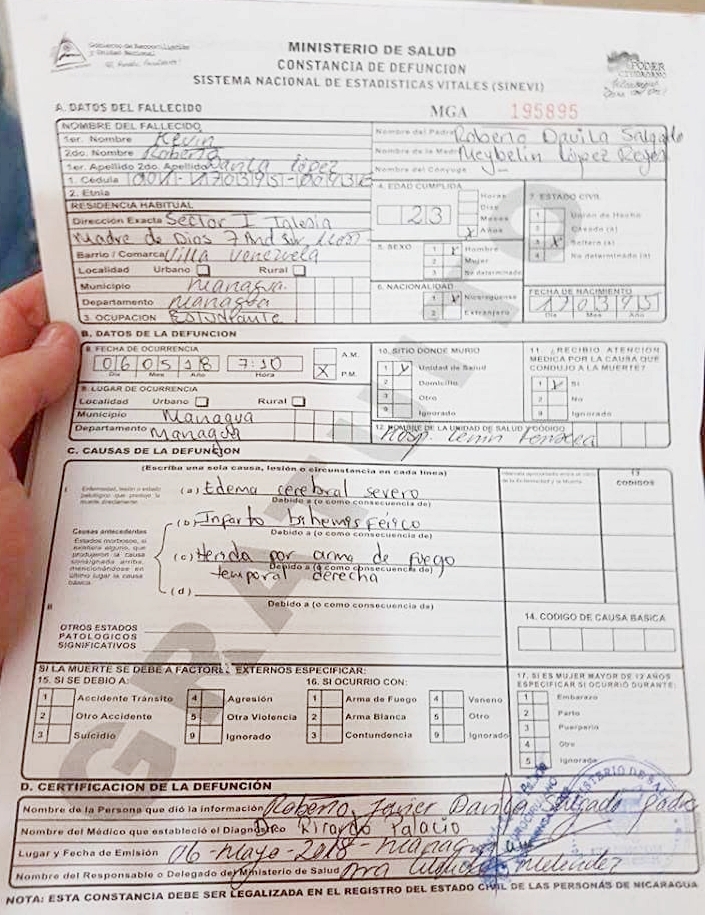 Gobierno de Reconciliación
y Unidad Nacional
El Pueblo, Presidente!
MINISTERIO DE SALUD
CONSTANCIA DE DEFUNCION
SISTEMA NACIONAL DE ESTADISTICAS VITALES (SINEVI)
PODER
CIUDADANO
A. DATOS DEL FALLECIDO
MGA 195895
NOMBRE DEL FALLECIDO
1er. Nombre Kevin
2do. Nombre Roberto
1er. Apellido 2do. Apellido Davila López
1. Cédula
2. Etnia
Nombre del Padre Roberto Davila Salgado
Nombre de la Madre Meybelin López Reyes
Nombre del Conyuge
RESIDENCIA HABITUAL
Dirección Exacta Sector I Iglesia
Madre de Dios 7 And Sur
Barrio / Comarca Villa Venezuela
Localidad Urbano Rural
Municipio Managua
Departamento Managua
3. OCUPACION Estudiante
4. EDAD CUMPLIDA
23
Horas
Días
Meses
X Años
5. SEXO
1 X Hombre
2 Mujer
3 No determinado
6. NACIONALIDAD
1 X Nicaragüense
2 Extranjero
7. ESTADO CIVIL
1 Unión de Hecho
2 Casado (a)
3 X Soltero (a)
4 No determinado (a)
FECHA DE NACIMIENTO
17 03 95
Día Mes Año
B. DATOS DE LA DEFUNCION
8. FECHA DE OCURRENCIA
06 05 18 7:10
Día Mes Año Hora
A.M.
X P.M.
9. LUGAR DE OCURRENCIA
Localidad Urbano Rural
Municipio Managua
Departamento Managua
10. SITIO DONDE MURIO
1 X Unidad de Salud
2 Domicilio
3 Otro
9 Ignorado
11. ¿RECIBIO ATENCION
MEDICA POR LA CAUSA QUE
CONDUJO A LA MUERTE?
1 X Si
2 No
9 Ignorado
12. NOMBRE DE LA UNIDAD DE SALUD Y CODIGO
Hosp. Lenin Fonseca
C. CAUSAS DE LA DEFUNCION
(Escriba una sola causa, lesión o circunstancia en cada linea)
I
Enfermedad, lesión o estado
patológico que produjo la
muerte directamente
(a) Edema cerebral severo
Debido a (o como consecuencia de)
Causas antecedentes
Estados morbosos, si
existiera alguno, que
produjeron la causa
consignada arriba,
mencionándose en
último lugar la causa
básica.
(b) Infarto bihemisférico
Debido a (o como consecuencia de)
(c) Herida por arma de fuego
Debido a (o como consecuencia de)
temporal derecha
(d)
Debido a (o como consecuencia de)
13
CODIGOS
II
OTROS ESTADOS
PATOLOGICOS
SIGNIFICATIVOS
14. CODIGO DE CAUSA BASICA
SI LA MUERTE SE DEBE A FACTORES EXTERNOS ESPECIFICAR:
15. SI SE DEBIO A:
1 Accidente Tránsito
2 Otro Accidente
3 Suicidio
4 Agresión
5 Otra Violencia
9 Ignorado
16. SI OCURRIO CON:
1 Arma de Fuego
2 Arma Blanca
3 Contundencia
4 Veneno
5 Otro
9 Ignorado
17. SI ES MUJER MAYOR DE 12 AÑOS
ESPECIFICAR SI OCURRIO DURANTE:
1 Embarazo
2 Parto
3 Puerperio
4 Otro
5 Ignorado
GRATUITO
D. CERTIFICACION DE LA DEFUNCIÓN
Nombre de la Persona que dió la información Roberto Javier Davila Salgado Padre
Nombre del Médico que estableció el Diagnóstico Ricardo Palacio
Lugar y Fecha de Emisión 06-mayo-2018-Managua
Nombre del Responsable o Delegado del Ministerio de Salud Dra Melendez
NOTA: ESTA CONSTANCIA DEBE SER LEGALIZADA EN EL REGISTRO DEL ESTADO CIVIL DE LAS PERSONAS DE NICARAGUA